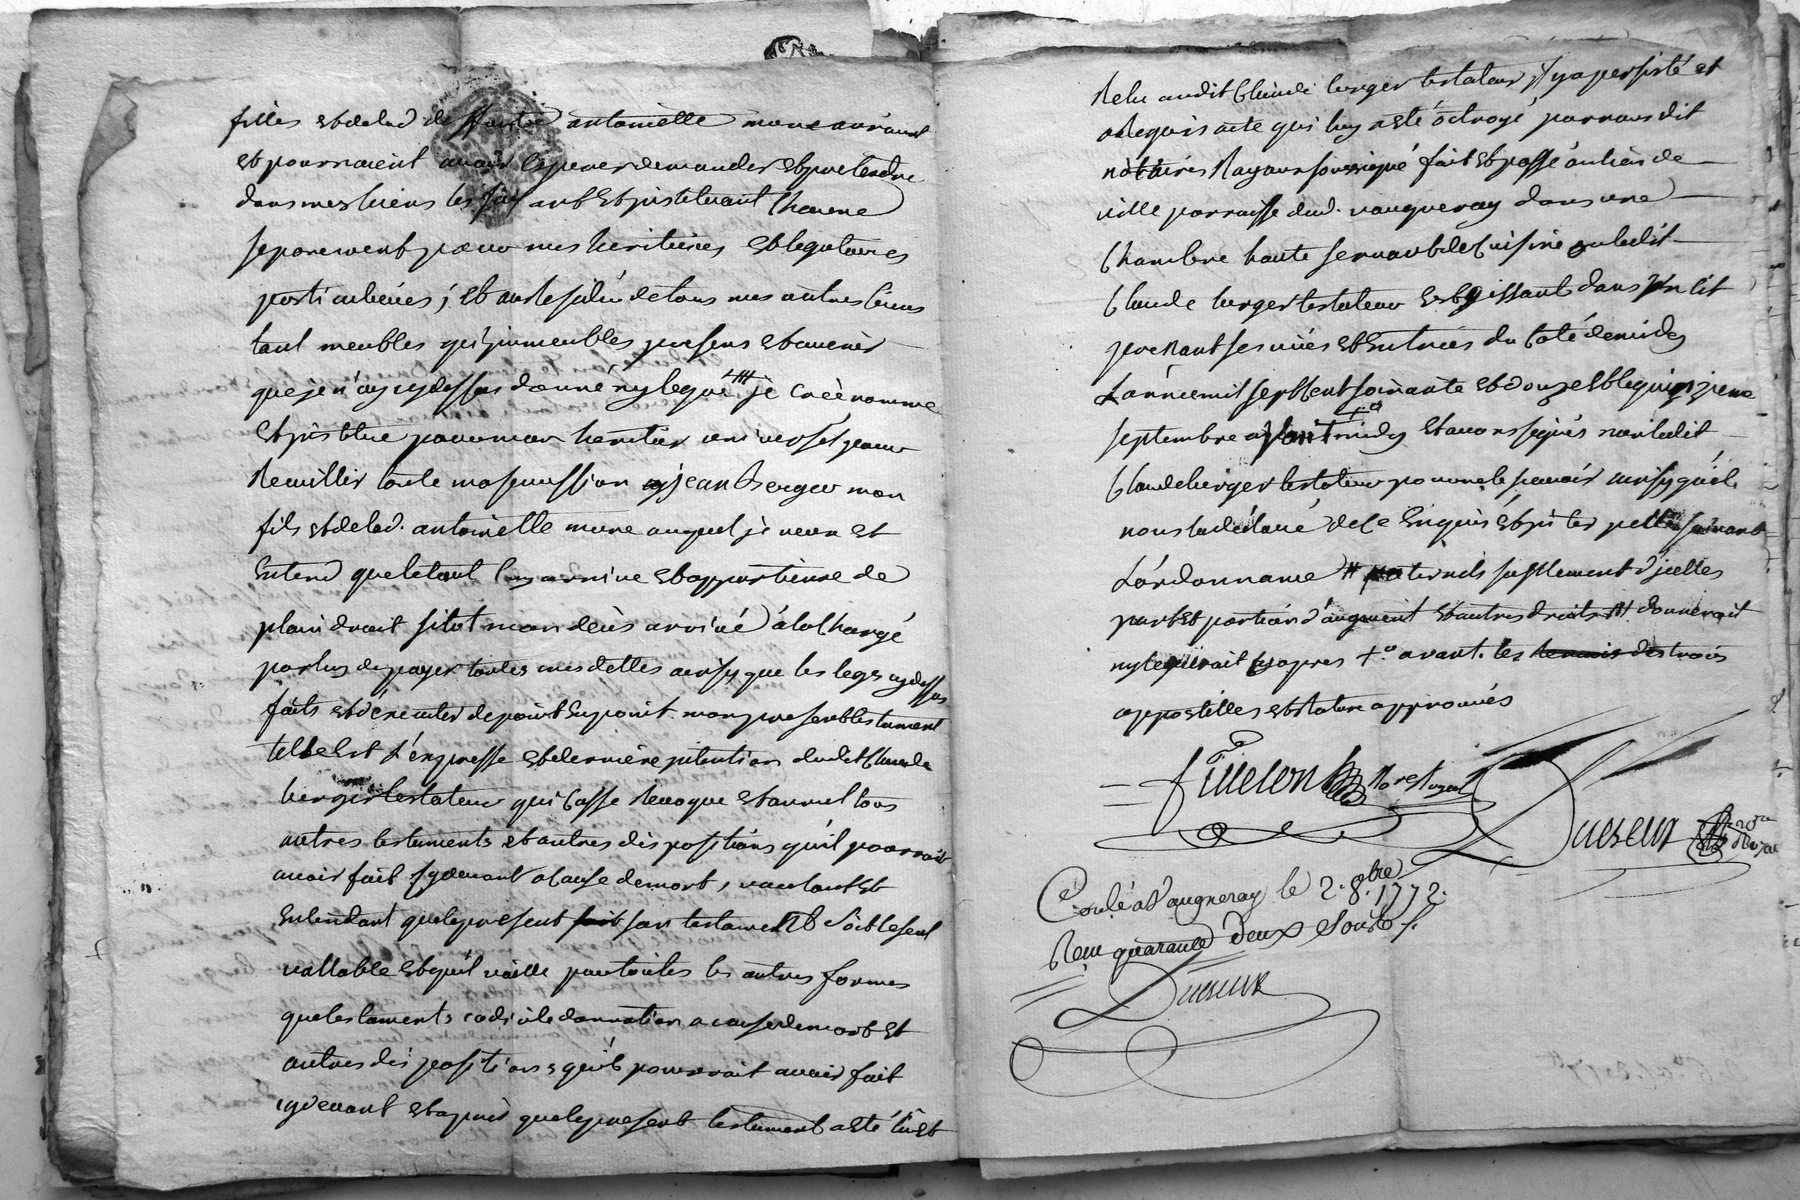 filles et de lad. deffunte antoinette mure auraient
et pourraient avoir esperer demander et pretendre
dans mes biens les faisant et instituant chacune
separement pour mes heritieres et legataires
particulieres ; et au residu de tous mes autres biens
tant meubles qu'immeubles presens et avenir
que je n'ay cydessus donné ny legué je crée nomme
et institue pour mon heritier universel pour
recueillir toute ma succession jean berger mon
fils et de lad. antoinette mure auquel je veux et
entend que le tout luy arrive et appartienne de
plain droit sitot mon déces arrivé à la charge
par luy de payer toutes mes dettes ainsy que les legs cydessus
faits et d'éxecuter de point en point mon present testament
telle est l'expresse et derniere intention dudit Claude
berger testateur qui casse revoque et annul tous
autres testaments et autres dispositions qu'il pourroit
avoir fait cydevant a cause de mort, voulant et
entendant que le present son testament soit le seul
vallable et qu'il vaille par toutes les autres formes
que testament, codicile donnation a cause de mort et
autres dispositions qu'il pourroit avoir fait
cydevant et apres que le present testament a eté lû et
Relu audit Claude berger testateur il y a persisté et
a requis acte qui luy a eté octroyé par nous dit
notaires Royaux soussigné fait et passé au lieu de
ville parroisse dud. vaugneray dans une
Chambre haute servant de Cuisine ou ledit
Claude berger testateur est gissant dans un lit
prenant ses vües et entrées du coté de midy
L'an mil sept cent soixante et douze et le quinzieme
septembre avant midy et avons signés non ledit
Claude berger testateur pour ne le scavoir ainsy qu'il
nous la déclaré de ce enquis et interpellé suivant
L'ordonnance # paternels supplement d'icelles
part et portion d'augment et autres droits ## donnerait
ny leguerait cyapres +.o avant. les trois
appostilles et rature approuvés
Filleton Nore Royal Duereux
Conlé a Vaugneray le 2. 8.bre 1772.
Reçu quarante deux sous
Duereux